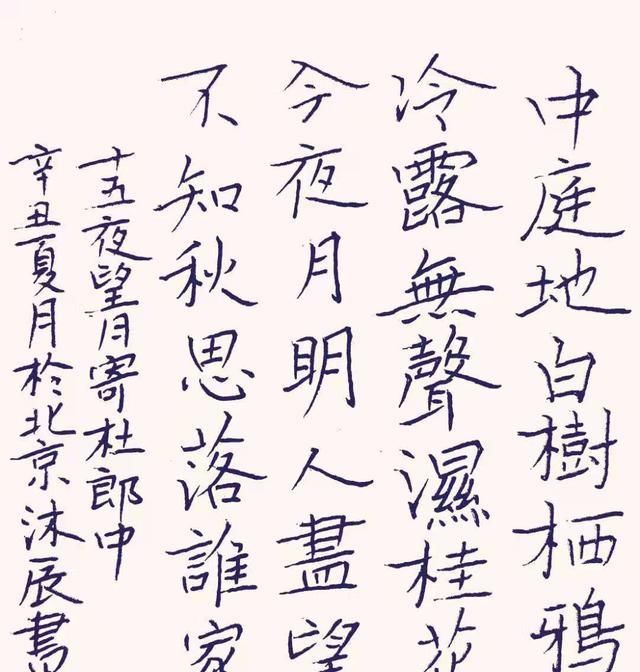 中庭地白樹栖鴉
冷露無聲濕桂花
今夜月明人盡望
不知秋思落誰家
十五夜望月寄杜郎中
辛丑夏月於北京沐辰書